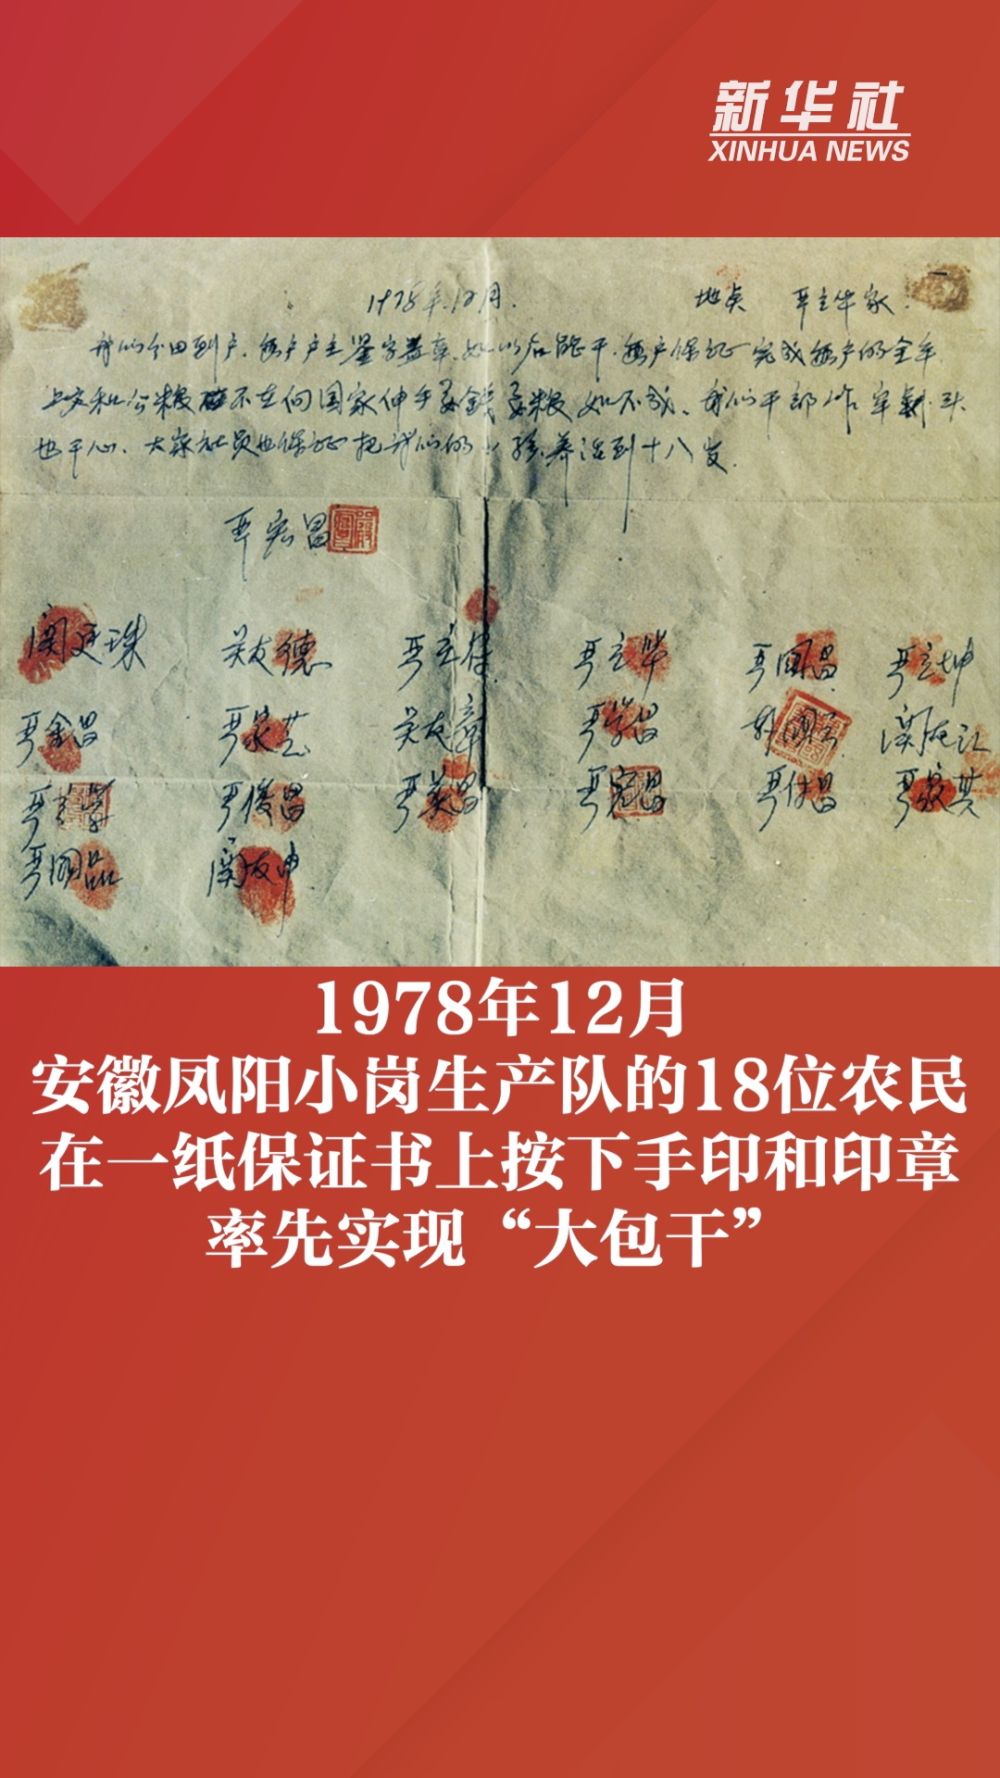 新华社
XINHUA NEWS
1978年12月. 地点 严立华家.
我们分田到户.每户户主签字盖章.如以后能干.每户保证完成每户的全年
上交和公粮不在向国家伸手要钱要粮如不成、我们干部作牢剎头
也干心、大家社员也保证把我们的小孩养活到十八岁.
严宏昌
关廷珠 关友德 严立符 严立华 严国昌 严立坤
严金昌 严家芝 关友章 严学昌 韩国云 关友江
严立学 严俊昌 严美昌 严宏昌 严付昌 严家其
严国品 关友申
1978年12月
安徽凤阳小岗生产队的18位农民
在一纸保证书上按下手印和印章
率先实现“大包干”